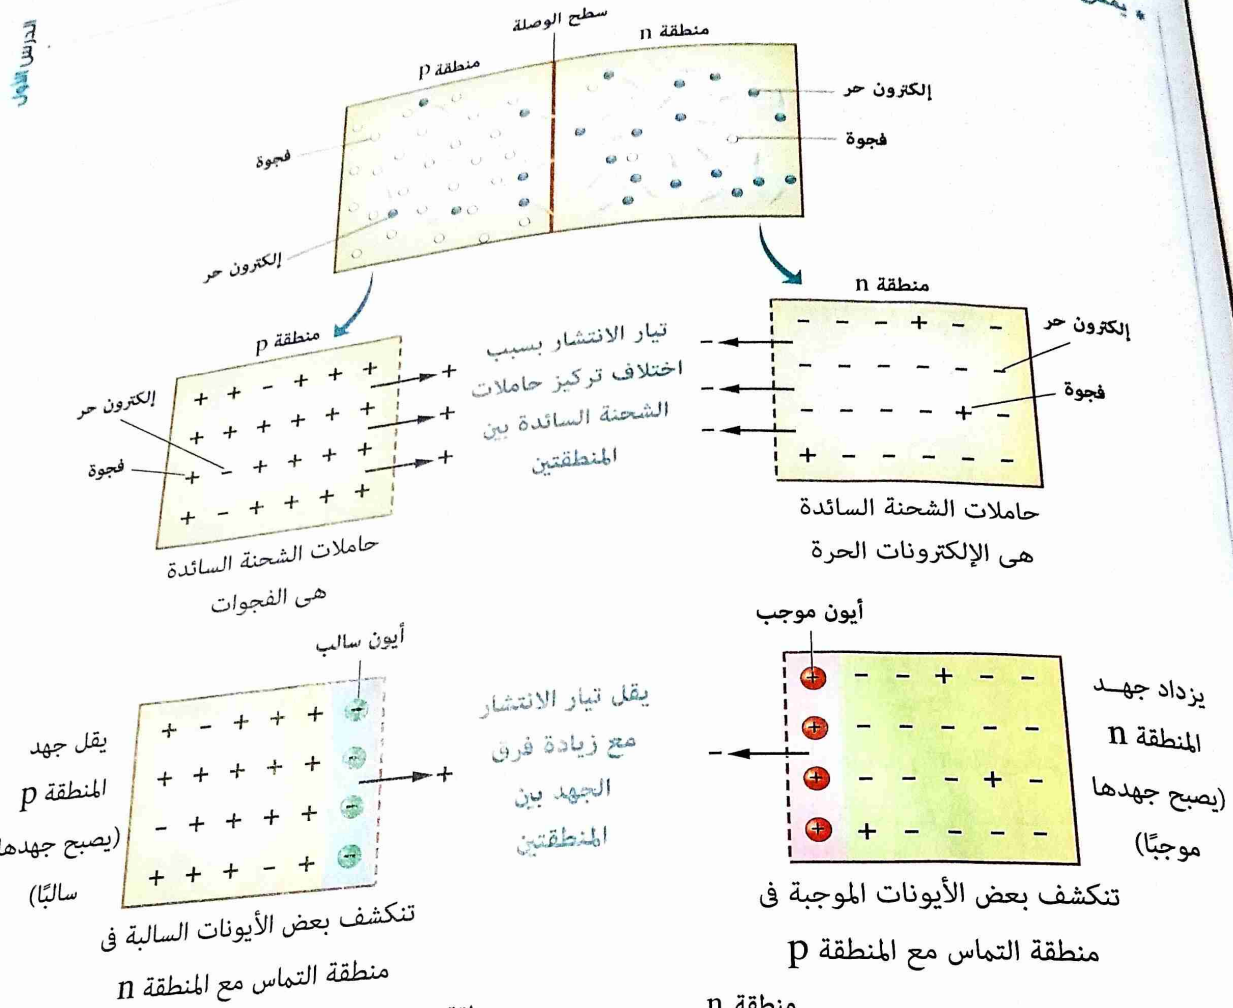 الدرس الأول
سطح الوصلة
منطقة n
منطقة p
إلكترون حر
فجوة
فجوة
إلكترون حر
منطقة n
إلكترون حر
فجوة
حاملات الشحنة السائدة
هى الإلكترونات الحرة
تيار الانتشار بسبب
اختلاف تركيز حاملات
الشحنة السائدة بين
المنطقتين
منطقة p
إلكترون حر
فجوة
حاملات الشحنة السائدة
هى الفجوات
أيون موجب
يزداد جهد
المنطقة n
(يصبح جهدها
موجبًا)
تنكشف بعض الأيونات الموجبة فى
منطقة التماس مع المنطقة p
يقل تيار الانتشار
مع زيادة فرق
الجهد بين
المنطقتين
أيون سالب
يقل جهد
المنطقة p
(يصبح جهدها
سالبًا)
تنكشف بعض الأيونات السالبة فى
منطقة التماس مع المنطقة n
منطقة n